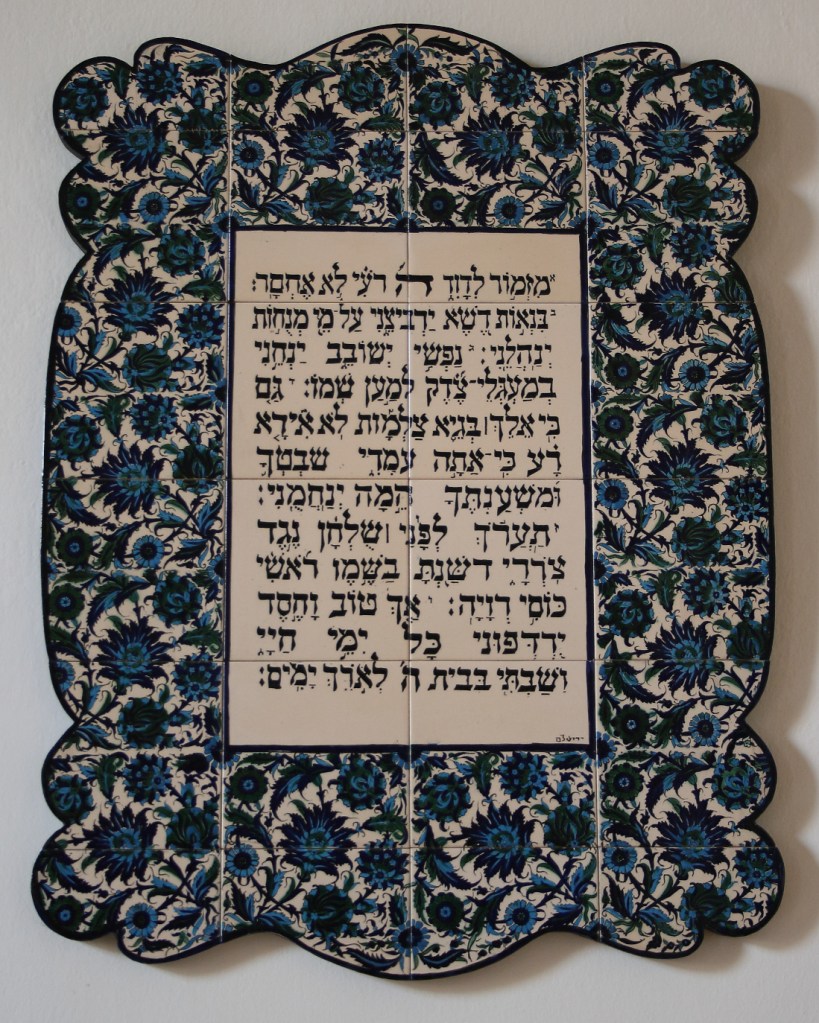 א מִזְמוֹר לְדָוִד ה' רֹעִי לֹא אֶחְסָר׃
ב בִּנְאוֹת דֶּשֶׁא יַרְבִּיצֵנִי עַל־מֵי מְנֻחוֹת
יְנַהֲלֵנִי׃ ג נַפְשִׁי יְשׁוֹבֵב יַנְחֵנִי
בְמַעְגְּלֵי־צֶדֶק לְמַעַן שְׁמוֹ׃ ד גַּם
כִּי־אֵלֵךְ׀בְּגֵיא צַלְמָוֶת לֹא־אִירָא
רָע כִּי־אַתָּה עִמָּדִי שִׁבְטְךָ
וּמִשְׁעַנְתֶּךָ הֵמָּה יְנַחֲמֻנִי׃
ה תַּעֲרֹךְ לְפָנַי׀שֻׁלְחָן נֶגֶד
צֹרְרָי דִּשַּׁנְתָּ בַשֶּׁמֶן רֹאשִׁי
כּוֹסִי רְוָיָה׃ ו אַךְ טוֹב וָחֶסֶד
יִרְדְּפוּנִי כָּל־יְמֵי חַיָּי
וְשַׁבְתִּי בְּבֵית ה' לְאֹרֶךְ יָמִים׃
ירושלם